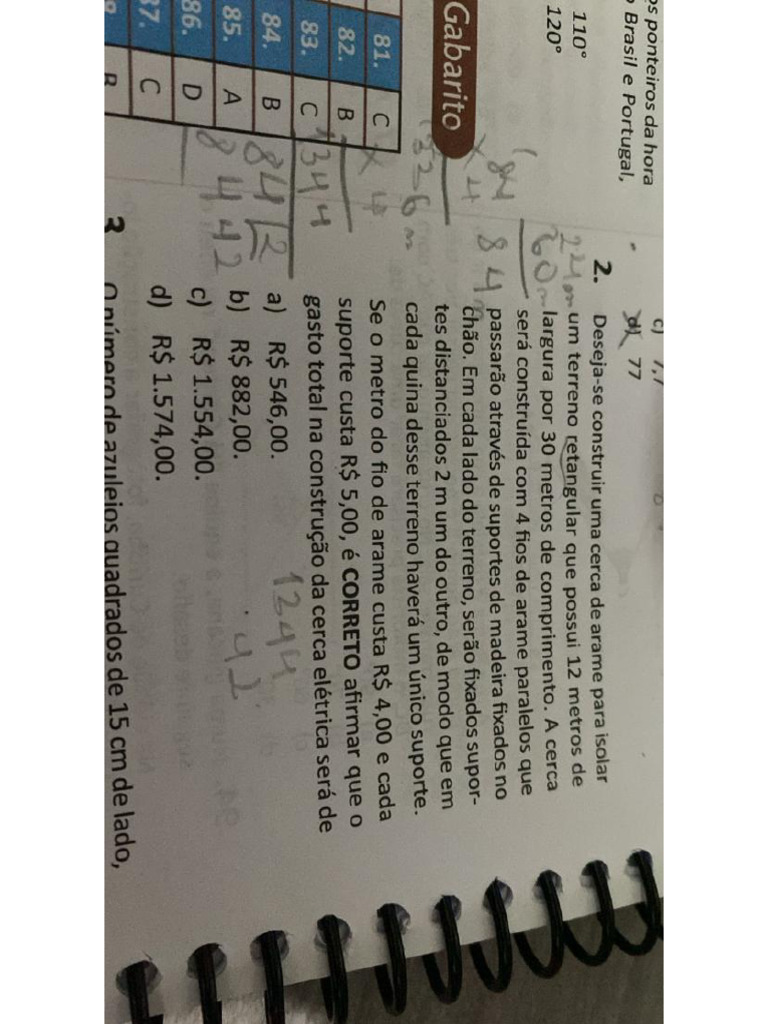 os ponteiros da hora
Brasil e Portugal,
110°
120°
Gabarito
81. C
82. B
83. C
84. B
85. A
86. D
87. C
B
c) 7,7
d) 77
2. Deseja-se construir uma cerca de arame para isolar
um terreno retangular que possui 12 metros de
largura por 30 metros de comprimento. A cerca
será construída com 4 fios de arame paralelos que
passarão através de suportes de madeira fixados no
chão. Em cada lado do terreno, serão fixados supor-
tes distanciados 2 m um do outro, de modo que em
cada quina desse terreno haverá um único suporte.
Se o metro do fio de arame custa R$ 4,00 e cada
suporte custa R$ 5,00, é CORRETO afirmar que o
gasto total na construção da cerca elétrica será de
a) R$ 546,00.
b) R$ 882,00.
c) R$ 1.554,00.
d) R$ 1.574,00.
3 O número de azulejos quadrados de 15 cm de lado,
24m
60m
84m
84
x4
326m
x 4
1344
84 2
8 442
1244
42